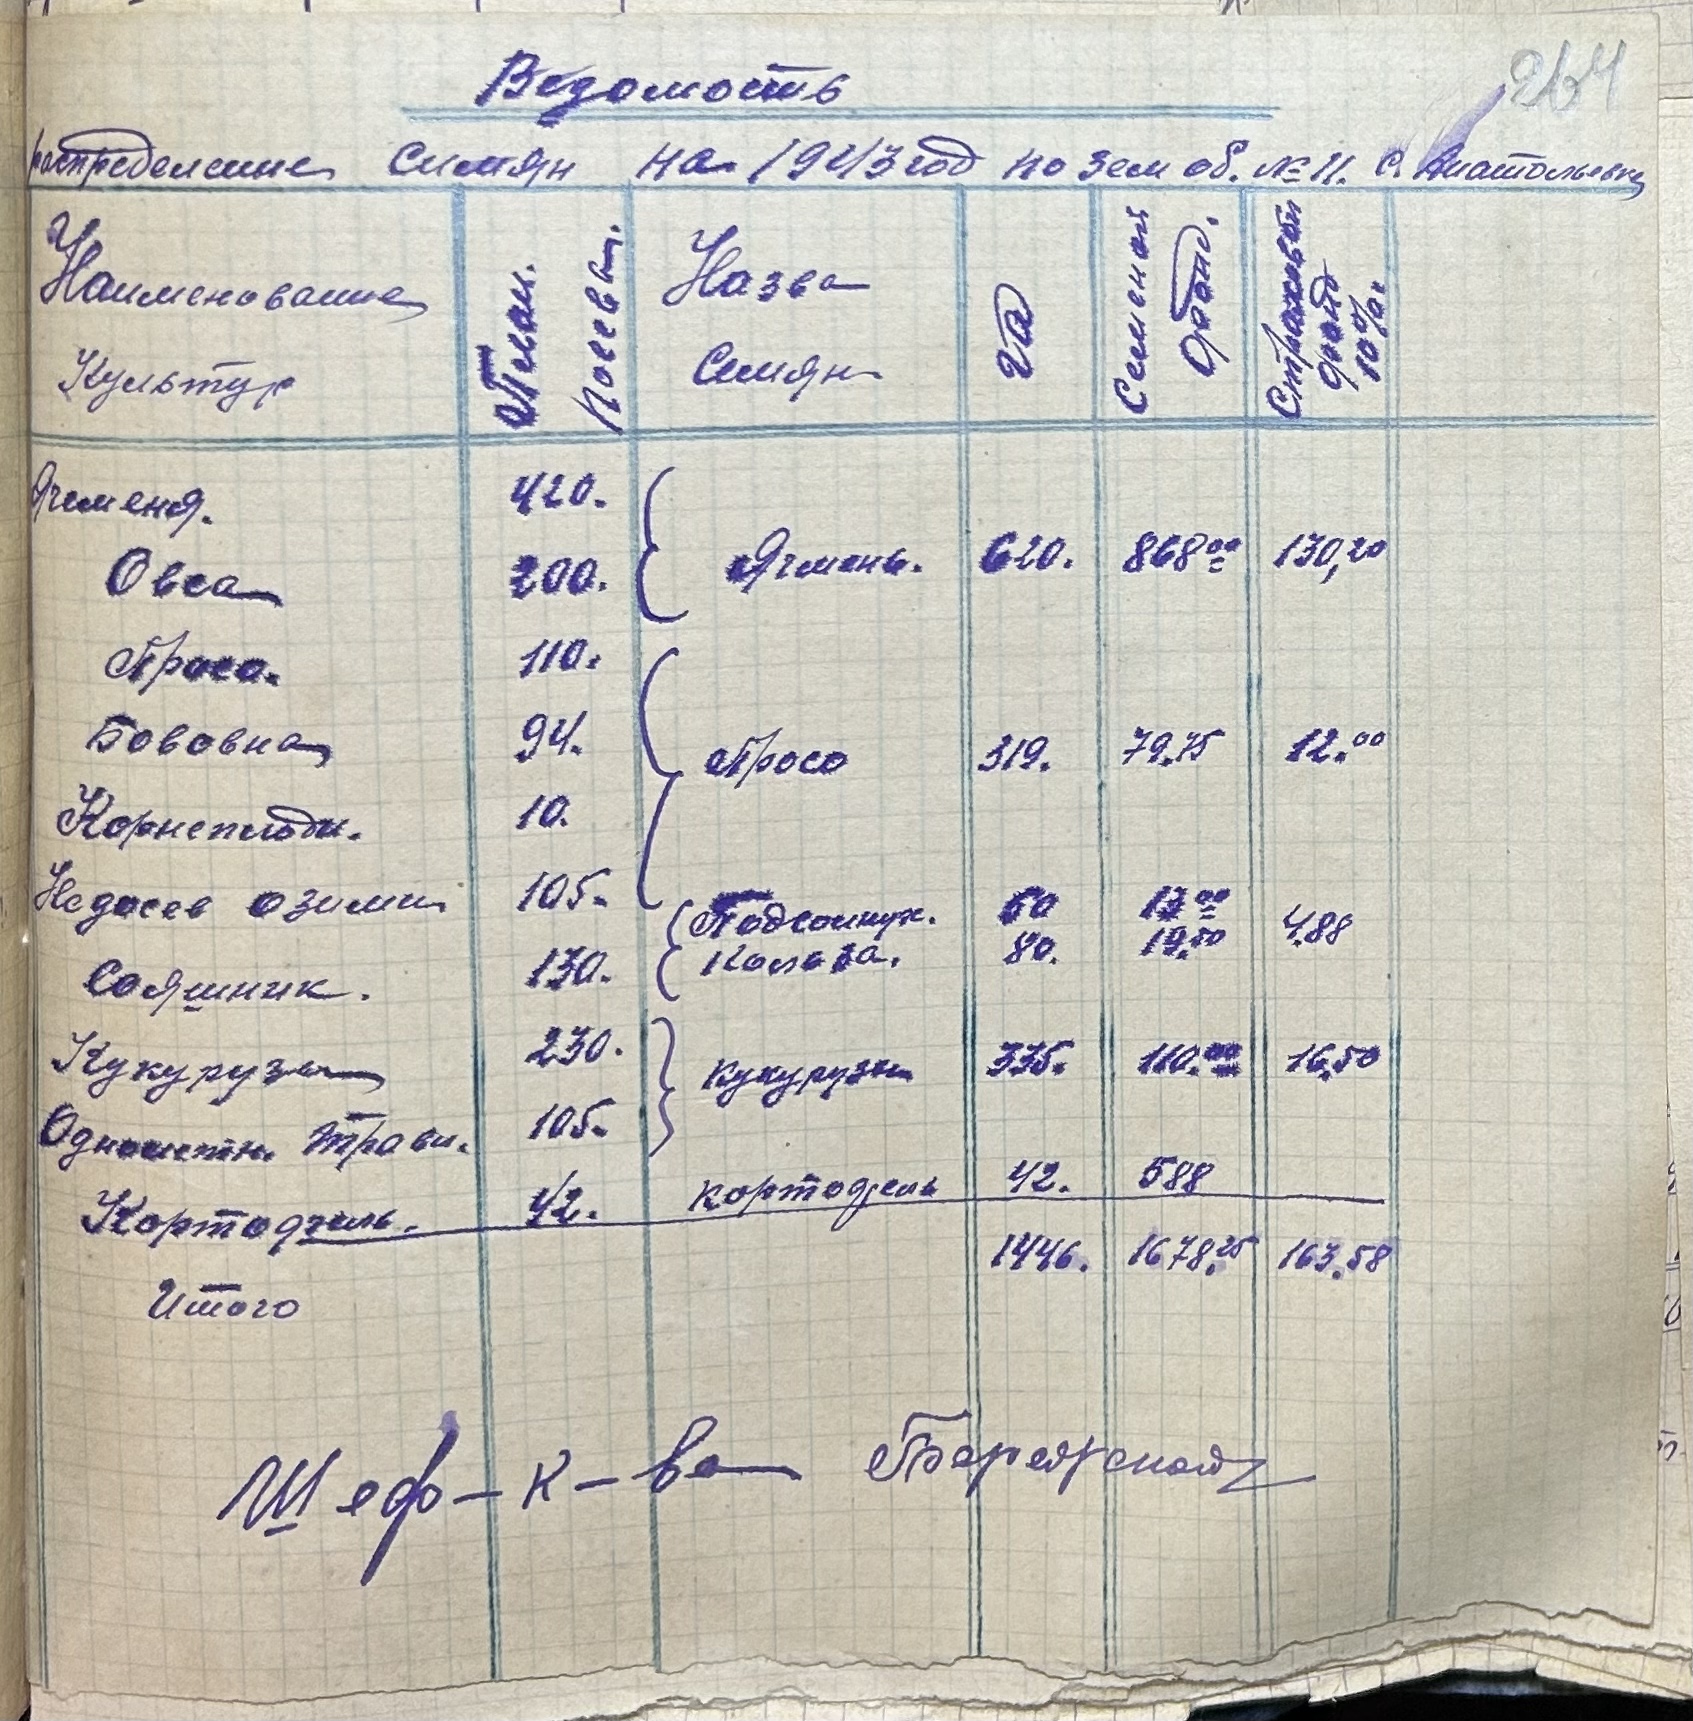 264
Ведомость
распределение симян на 1943 год по зем об. № 11. с. Анатольевка
Наименование Культур План. Посева. Назва Симян Га Семеной фонд. Страховой фонд 10%.
Ячменя. 420.
Ячмень. 620. 868.00 130,20
Овса 200.
Проса. 110.
Бововна 94. Просо 319. 79.75 12.00
Корнеплоди. 10.
Недосев озими 105.
Подсолнух. 50 12.00
4.88
Кольза. 80. 19.50
Сояшник. 130.
Кукурузы 230. Кукурузы 335. 110.00 16,50
Однолетн. трави. 105.
Картофель. 42. картофель 42. 588
1446. 1678.25 163.58
Итого
Шеф-к-ва